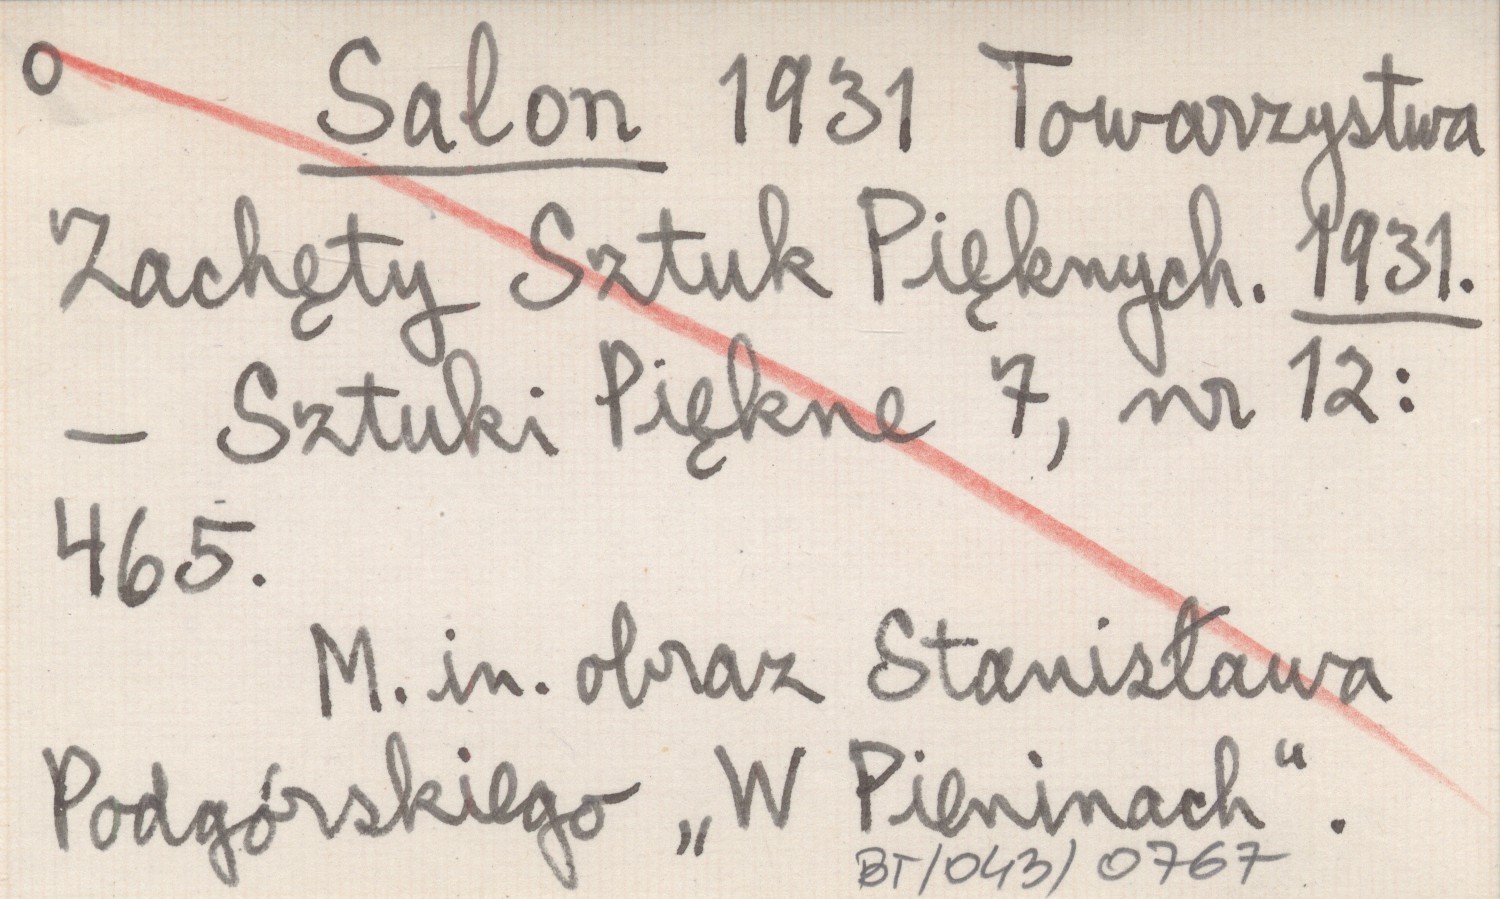 o Salon 1931 Towarzystwa
Zachęty Sztuk Pięknych. 1931.
– Sztuki Piękne 7, nr 12:
465.
M. in. obraz Stanisława
Podgórskiego „W Pieninach“.
BT/043/0767